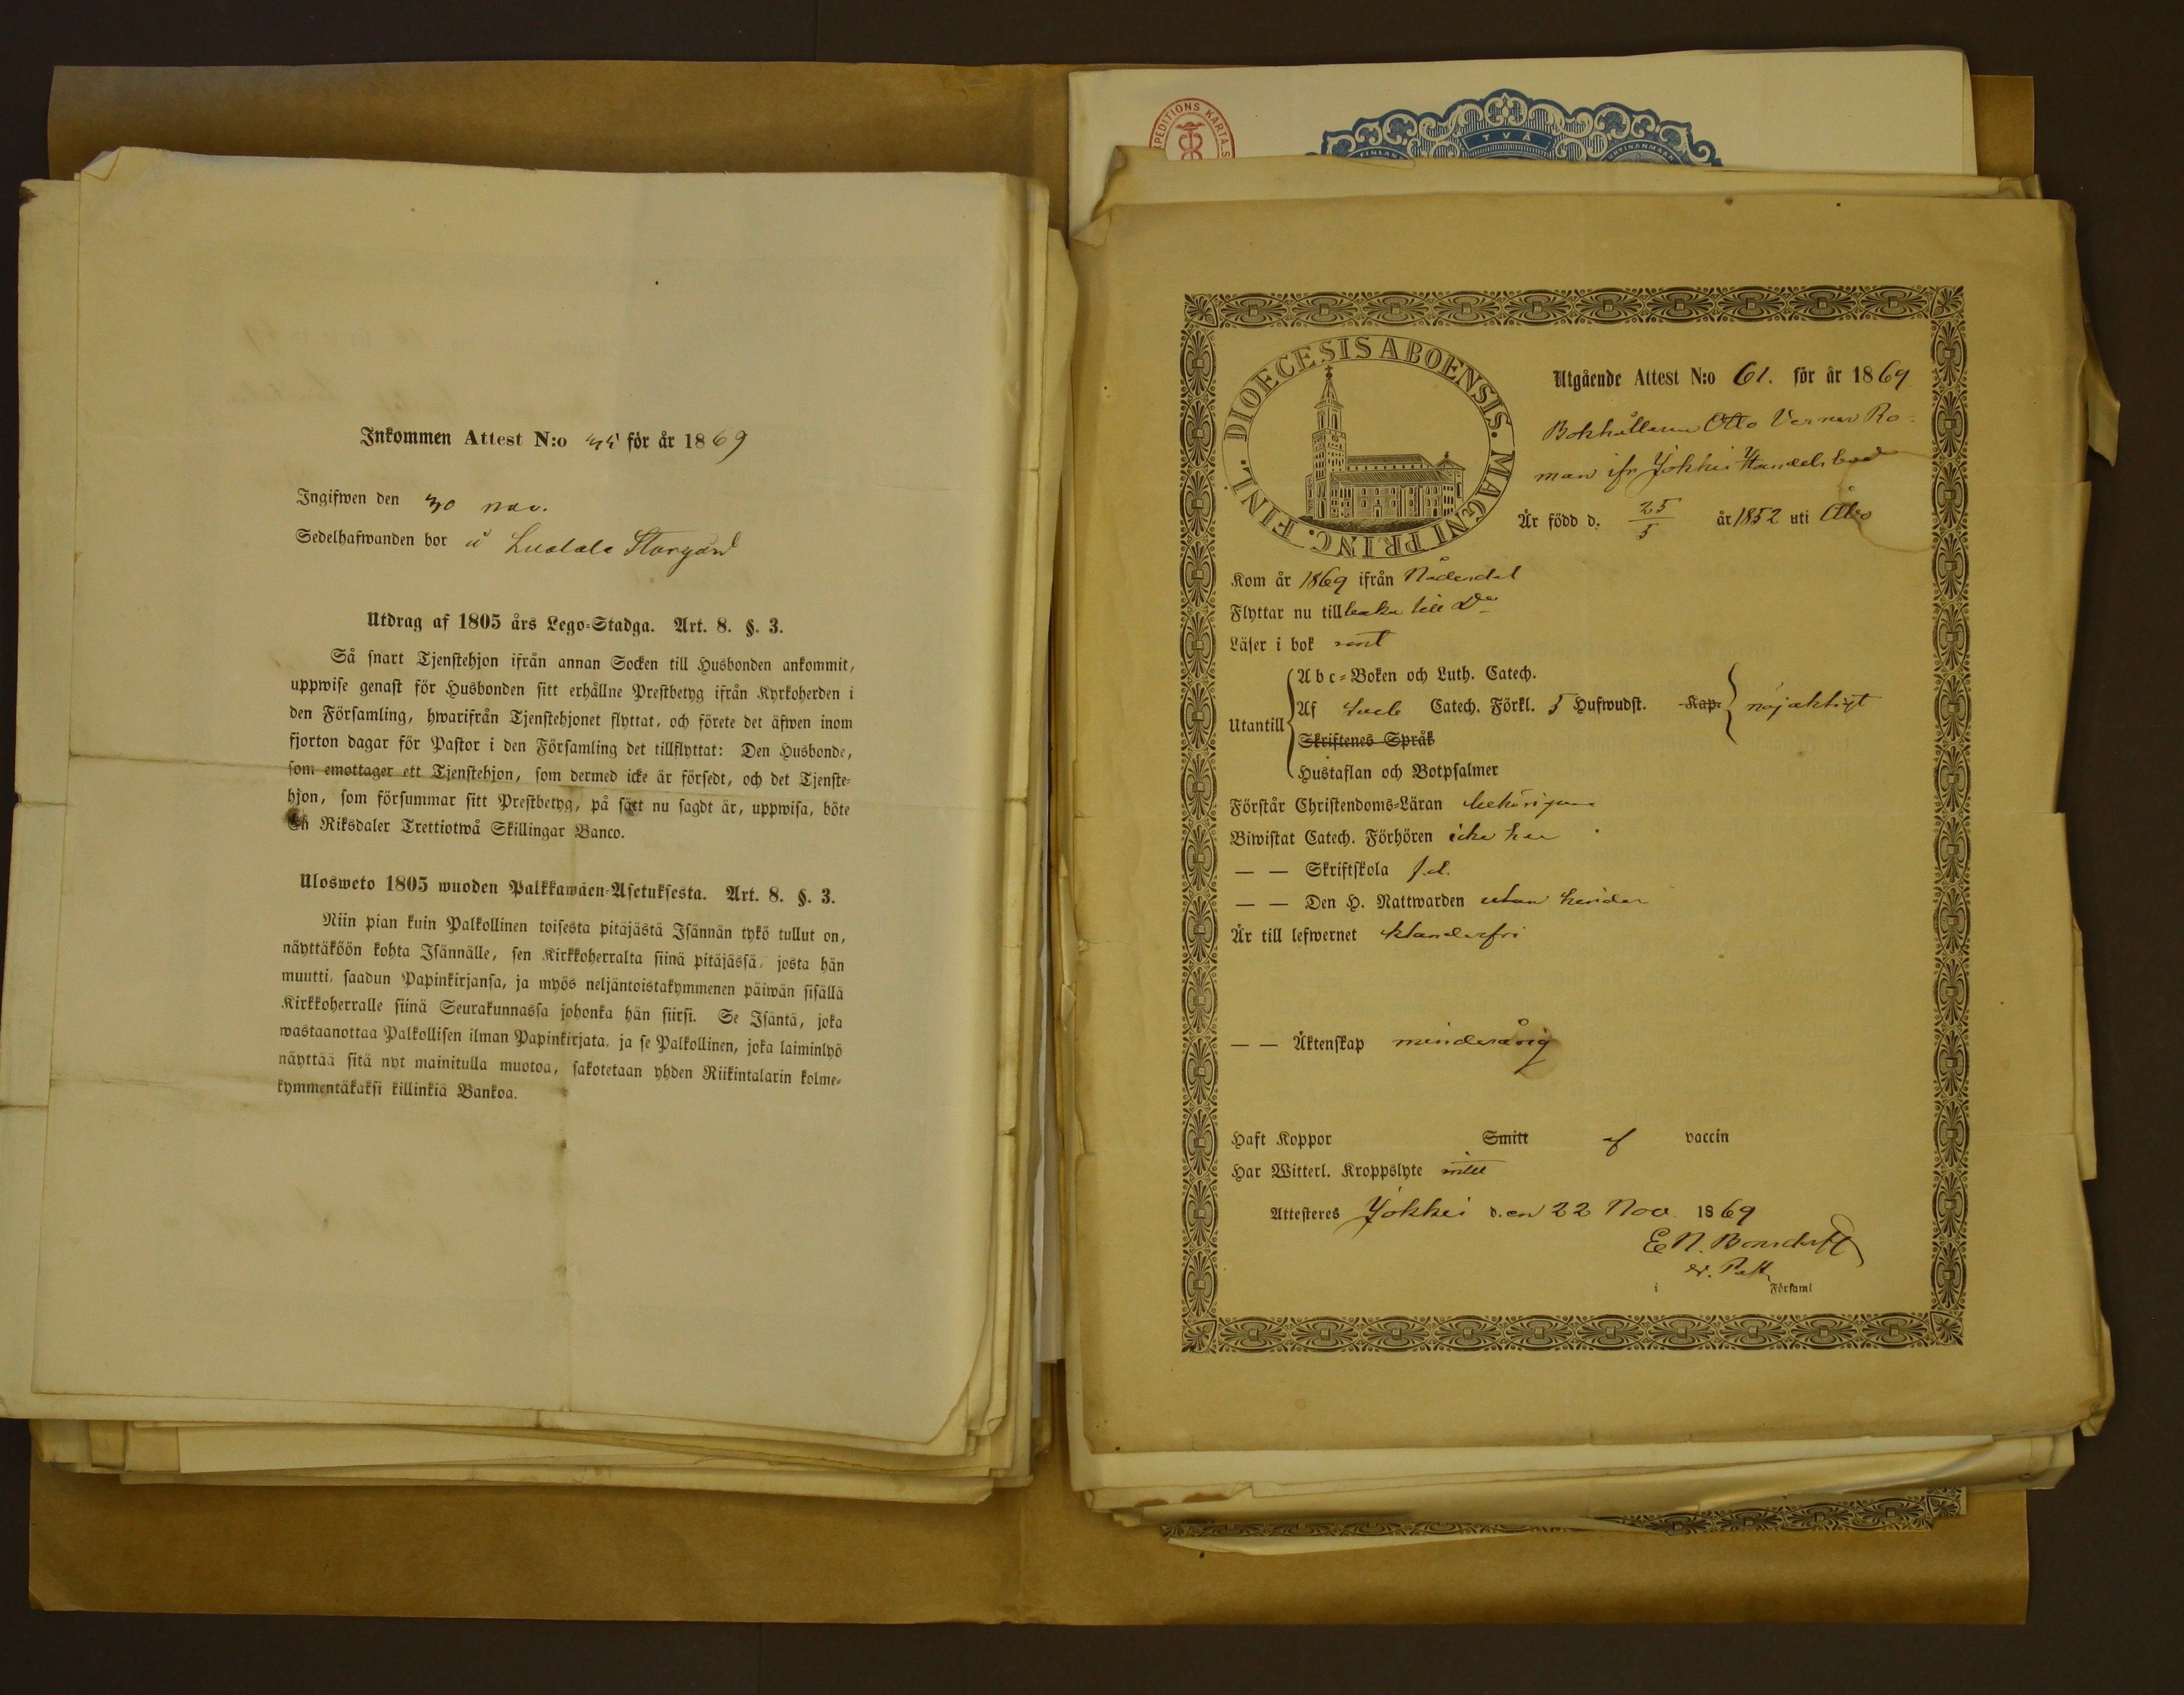 EXPEDITIONS KARTA S
TVÅ
FINLAN
URFINANMAAN
Inkommen Attest N:o 45 för år 1869
Ingifwen den 30 nov.
Sedelhafwanden bor å Luolala Storgård
Utdrag af 1805 års Lego-Stadga. Art. 8. §. 3.
Så snart Tjenstehjon ifrån annan Socken till Husbonden ankommit,
uppwise genast för Husbonden sitt erhållne Prestbetyg ifrån Kyrkoherden i
den Församling, hwarifrån Tjenstehjonet flyttat, och förete det äfwen inom
fjorton dagar för Pastor i den Församling det tillflyttat: Den Husbonde,
som emottager ett Tjenstehjon, som dermed icke är försedt, och det Tjenste-
hjon, som försummar sitt Prestbetyg, på sätt nu sagdt är, uppwisa, böte
En Riksdaler Trettiotwå Skillingar Banco.
Ulosweto 1805 wuoden Palkkawäen-Asetuksesta. Art. 8. §. 3.
Niin pian kuin Palkollinen toisesta pitäjästä Isännän tykö tullut on,
näyttäköön kohta Isännälle, sen Kirkkoherralta siinä pitäjässä, josta hän
muutti, saadun Papinkirjansa, ja myös neljäntoistakymmenen päiwän sisällä
Kirkkoherralle siinä Seurakunnassa johonka hän siirsi. Se Isäntä, joka
wastaanottaa Palkollisen ilman Papinkirjata, ja se Palkollinen, joka laiminlyö
näyttää sitä nyt mainitulla muotoa, sakotetaan yhden Riikintalarin kolme-
kymmentäkaksi killinkiä Bankoa.
DIOECESIS ABOENSIS. MAGNI PRINC. FINL.
Utgående Attest N:o 61. för år 1869
Bokhållaren Otto Verner Ro-
man ifr Jokkis Handelsbod
Är född d. 25/5 år 1852 uti Åbo
Kom år 1869 ifrån Nådendal
Flyttar nu tillbaka till Do
Läser i bok rent
Utantill
Abc-Boken och Luth. Catech.
Af Catech. Förkl. 5 Hufwudst. Kap. nöjaktigt
Skriftenes Språk
Hustaflan och Botpsalmer
Förstår Christendoms-Läran behörigen
Biwistat Catech. Förhören icke här
— — Skriftskola f.d.
— — Den H. Nattwarden utan hinder
Är till lefwernet klanderfri
— — Äktenskap minderårig
Haft Koppor Smitt af vaccin
Har Witterl. Kroppslyte intet
Attesteres Jokkis d.en 22 Nov 1869
E N. Bonsdorff
v. Past
i Församl